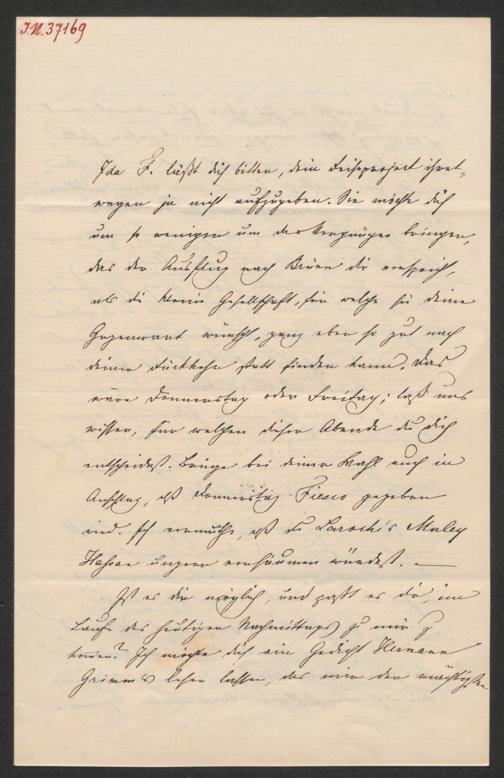 I.N. 37169
Ida F. läßt dich bitten, dein Reiseproject ihret-
wegen ja nicht aufzugeben. Sie möchte dich
um so weniger um das Vergnügen bringen,
das der Ausflug nach Brünn dir verspricht,
als die kleine Gesellschaft, für welche sie deine
Gegenwart wünscht, ganz eben so gut nach
deiner Rückkehr statt finden kann. Das
wäre Donnerstag oder Freitag; laß uns
wissen, für welchen dieser Abende du dich
entscheidest. Bringe bei deiner Wahl auch in
Anschlag, daß Donnerstag Fiesco gegeben
wird. Ich vermuthe, daß du Laroche's Muley
Hassan ungern versäumen würdest. —
Ist es dir möglich, und paßt es dir, im
Laufe des heutigen Nachmittags zu mir zu
kommen? Ich möchte dich ein Gedicht Hermann
Grimm's lesen lassen, das mir den mächtigsten